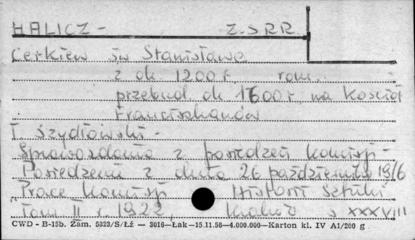 HALICZ - Z.S.R.R.
Cerkiew św Stanisława
z ok 1200 r rom.
przebud ok 1600 r. na Kościół
Franciszkanów
T. Szydłowski -
Sprawozdania z posiedzeń komisji -
Posiedzenie z dnia 26 października 1916
"Prace Komisji Historii Sztuki
Tom II r 1922, Kraków s XXXVIII
CWD - B-15b. Zam. 5323/S/Łż — 3016—Łak—15.11.56—4.000.000—Karton kl. IV A1/200 g